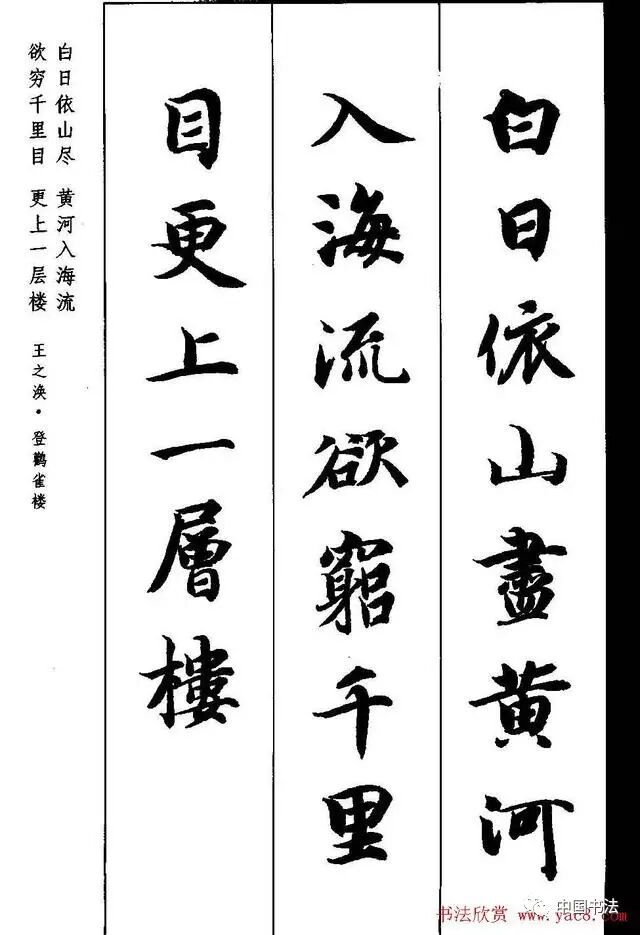 白日依山盡黄河
入海流欲窮千里
目更上一層樓
白日依山尽 黄河入海流
欲穷千里目 更上一层楼
王之涣·登鹳雀楼
中国书法
书法欣赏 www.yac8.com